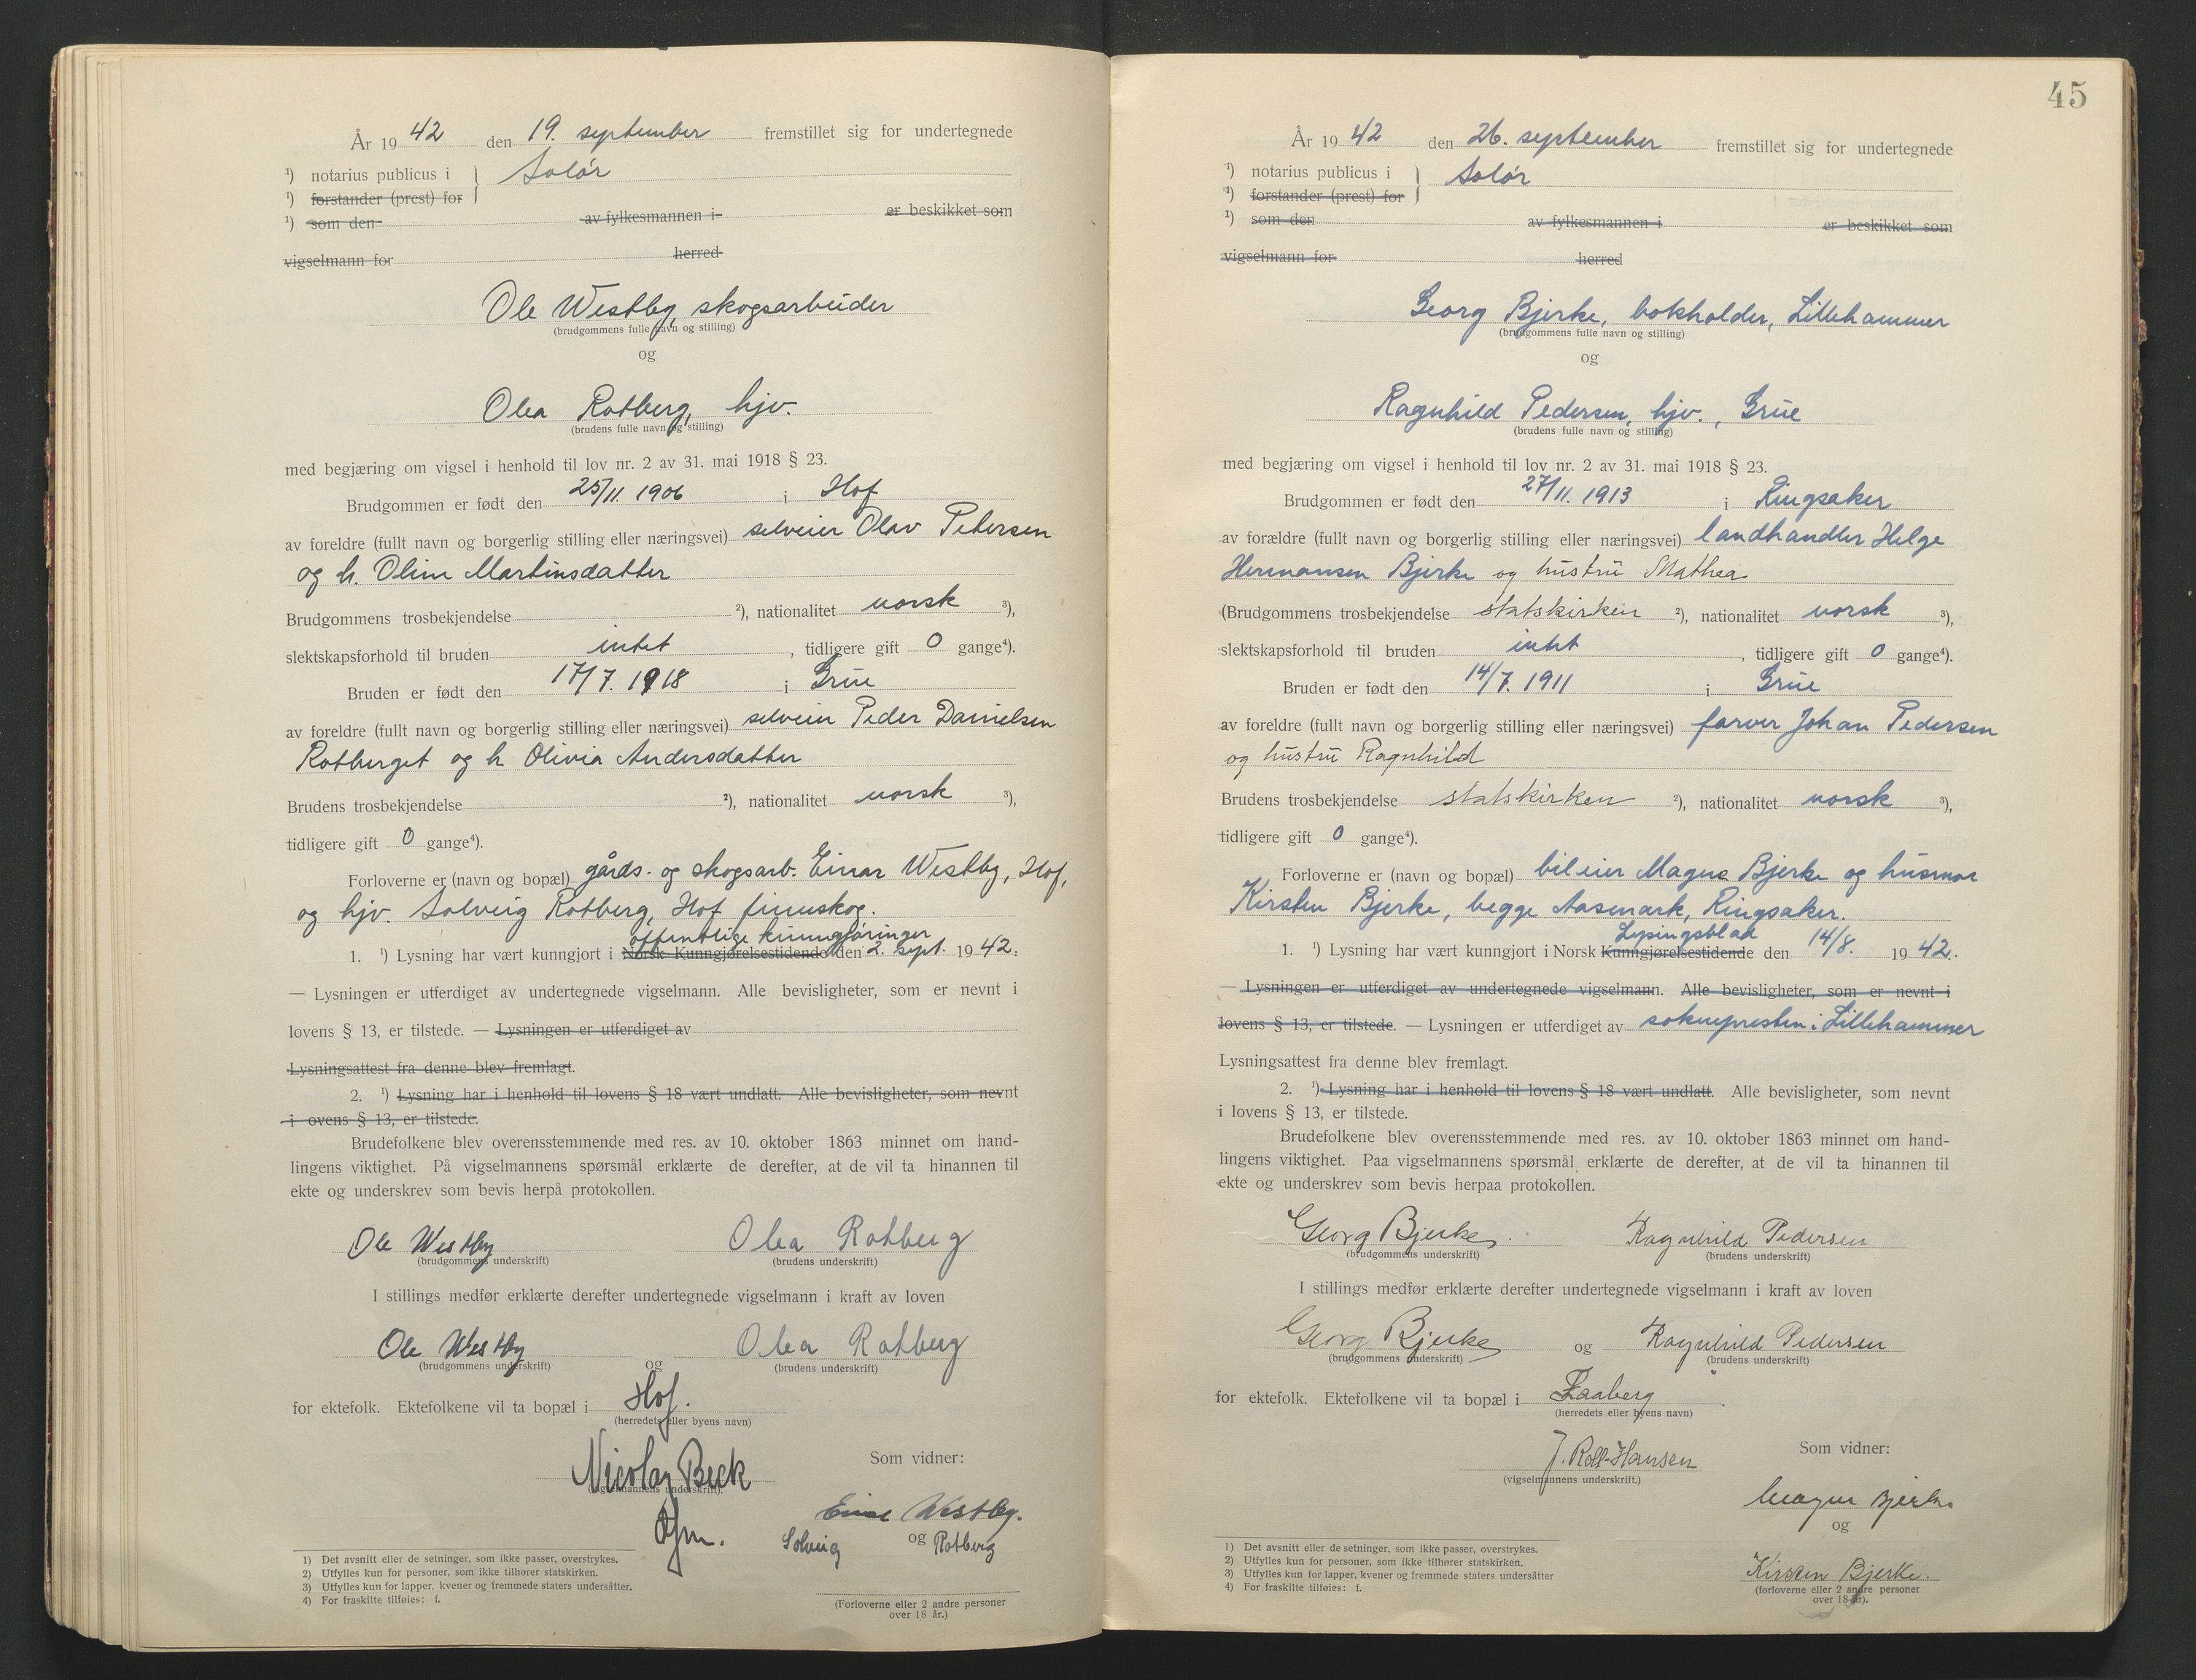 År 19 42 den 19. september fremstillet sig for undertegnede
¹) notarius publicus i } Solør
¹) forstander (prest) for
¹) som den av fylkesmannen i er beskikket som
vigselmann for herred
Ole Westby, skogsarbeider
(brudgommens fulle navn og stilling)
og
Olea Rotberg, hjv.
(brudens fulle navn og stilling)
med begjæring om vigsel i henhold til lov nr. 2 av 31. mai 1918 § 23.
Brudgommen er født den 25/11. 1906 i Hof
av foreldre (fullt navn og borgerlig stilling eller næringsvei) selveier Olav Petersen
og h. Oline Martinsdatter
Brudgommens trosbekjendelse ²), nationalitet norsk ³),
slektskapsforhold til bruden intet, tidligere gift 0 gange⁴).
Bruden er født den 17/7. 1918 i Grue
av foreldre (fullt navn og borgerlig stilling eller næringsvei) selveier Peder Danielsen
Rotberget og h Olivia Andersdatter
Brudens trosbekjendelse ²), nationalitet norsk ³),
tidligere gift 0 gange⁴).
Forloverne er (navn og bopæl) gårds- og skogsarb. Einar Westby, Hof,
og hjv. Solveig Rotberg, Hof finnskog.
offentlige kunngjøringer
1. ¹) Lysning har vært kunngjort i Norsk Kunngjørelsestidende den 2. sept. 19 42.
— Lysningen er utferdiget av undertegnede vigselmann. Alle bevisligheter, som er nevnt i
lovens § 13, er tilstede. — Lysningen er utferdiget av
Lysningsattest fra denne blev fremlagt.
2. ¹) Lysning har i henhold til lovens § 18 vært undlatt. Alle bevisligheter, som nevnt
i ovens § 13, er tilstede.
Brudefolkene blev overensstemmende med res. av 10. oktober 1863 minnet om hand-
lingens viktighet. På vigselmannens spørsmål erklærte de derefter, at de vil ta hinannen til
ekte og underskrev som bevis herpå protokollen.
Ole Westby Olea Rotberg
(brudgommens underskrift) (brudens underskrift)
I stillings medfør erklærte derefter undertegnede vigselmann i kraft av loven
Ole Westby og Olea Rotberg
(brudgommens underskrift) (brudens underskrift)
for ektefolk. Ektefolkene vil ta bopæl i Hof.
(herredets eller byens navn)
Nicolay Beck Som vidner:
(vigselmannens underskrift).
Einar Westby.
Solveig og Rotberg
(Forloverne eller 2 andre personer
over 18 år.)
1) Det avsnitt eller de setninger, som ikke passer, overstrykes.
2) Utfylles kun for personer, som ikke tilhører statskirken.
3) Utfylles kun for lapper, kvener og fremmede staters undersåtter.
4) For fraskilte tilføies: f.
45
År 19 42 den 26. september fremstillet sig for undertegnede
¹) notarius publicus i } Solør
¹) forstander (prest) for
¹) som den av fylkesmannen i er beskikket som
vigselmann for herred
Georg Bjerke, bokholder, Lillehammer
(brudgommens fulle navn og stilling)
og
Ragnhild Pedersen, hjv., Grue
(brudens fulle navn og stilling)
med begjæring om vigsel i henhold til lov nr. 2 av 31. mai 1918 § 23.
Brudgommen er født den 27/11. 1913 i Ringsaker
av forældre (fullt navn og borgerlig stilling eller næringsvei) landhandler Helge
Hermansen Bjerke og hustru Mathea
(Brudgommens trosbekjendelse statskirken ²), nationalitet norsk ³),
slektskapsforhold til bruden intet, tidligere gift 0 gange⁴).
Bruden er født den 14/7. 1911 i Grue
av foreldre (fullt navn og borgerlig stilling eller næringsvei) farver Johan Pedersen
og hustru Ragnhild
Brudens trosbekjendelse statskirken ²), nationalitet norsk ³),
tidligere gift 0 gange⁴).
Forloverne er (navn og bopæl) bileier Magne Bjerke og husmor
Kirsten Bjerke, begge Aasmark, Ringsaker.
Lysingsblad
1. ¹) Lysning har vært kunngjort i Norsk Kunngjørelsestidende den 14/8. 19 42.
— Lysningen er utferdiget av undertegnede vigselmann. Alle bevisligheter, som er nevnt i
lovens § 13, er tilstede. — Lysningen er utferdiget av soknepresten i Lillehammer
Lysningsattest fra denne blev fremlagt.
2. ¹) Lysning har i henhold til lovens § 18 vært undlatt. Alle bevisligheter, som nevnt
i lovens § 13, er tilstede.
Brudefolkene blev overensstemmende med res. av 10. oktober 1863 minnet om hand-
lingens viktighet. Paa vigselmannens spørsmål erklærte de derefter, at de vil ta hinannen til
ekte og underskrev som bevis herpaa protokollen.
Georg Bjerke Ragnhild Pedersen
(brudgommens underskrift) (brudens underskrift)
I stillings medfør erklærte derefter undertegnede vigselmann i kraft av loven
Georg Bjerke og Ragnhild Pedersen
(brudgommens underskrift) (brudens underskrift)
for ektefolk. Ektefolkene vil ta bopæl i Faaberg.
(herredets eller byens navn)
J. Roll-Hansen Som vidner:
(vigselmannens underskrift.)
Magne Bjerke
og
Kirsten Bjerke.
(forloverne eller 2 andre personer
over 18 år).
1) Det avsnitt eller de setninger, som ikke passer, overstrykes.
2) Utfylles kun for personer, som ikke tilhører statskirken.
3) Utfylles kun for lapper, kvener og fremmede staters undersåtter
4) For fraskilte tilføies: f.